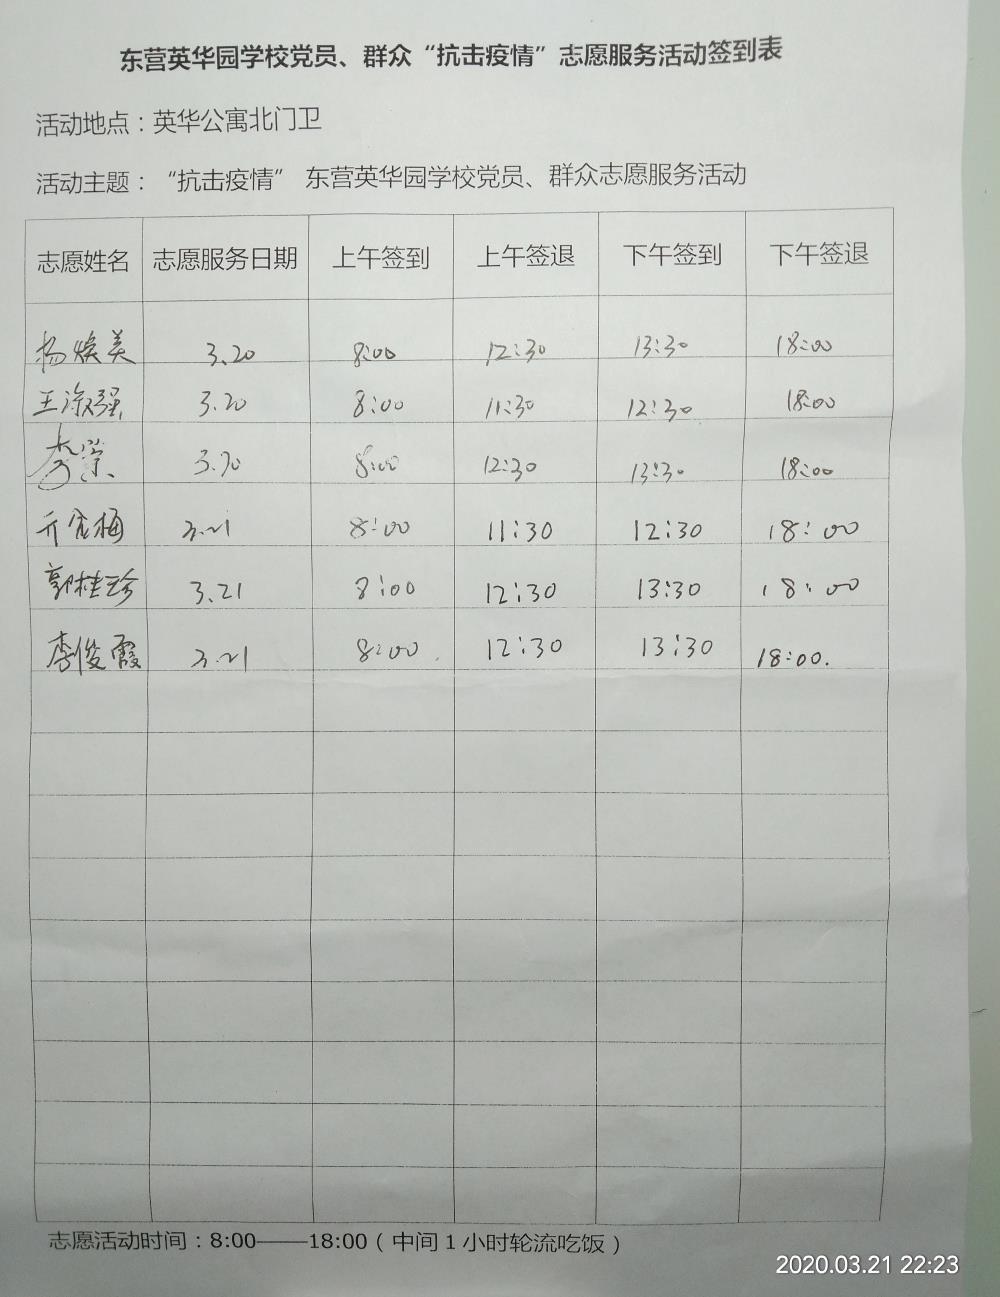 东营英华园学校党员、群众“抗击疫情”志愿服务活动签到表
活动地点：英华公寓北门卫
活动主题：“抗击疫情” 东营英华园学校党员、群众志愿服务活动
志愿姓名 志愿服务日期 上午签到 上午签退 下午签到 下午签退
杨焕美 3.20 8:00 12:30 13:30 18:00
王 3.20 8:00 11:30 12:30 18:00
李荣 3.20 8:00 12:30 13:30 18:00
梅 3.21 8:00 11:30 12:30 18:00
郭桂珍 3.21 8:00 12:30 13:30 18:00
李俊霞 3.21 8:00 12:30 13:30 18:00.
志愿活动时间：8:00——18:00（中间1小时轮流吃饭）
2020.03.21 22:23